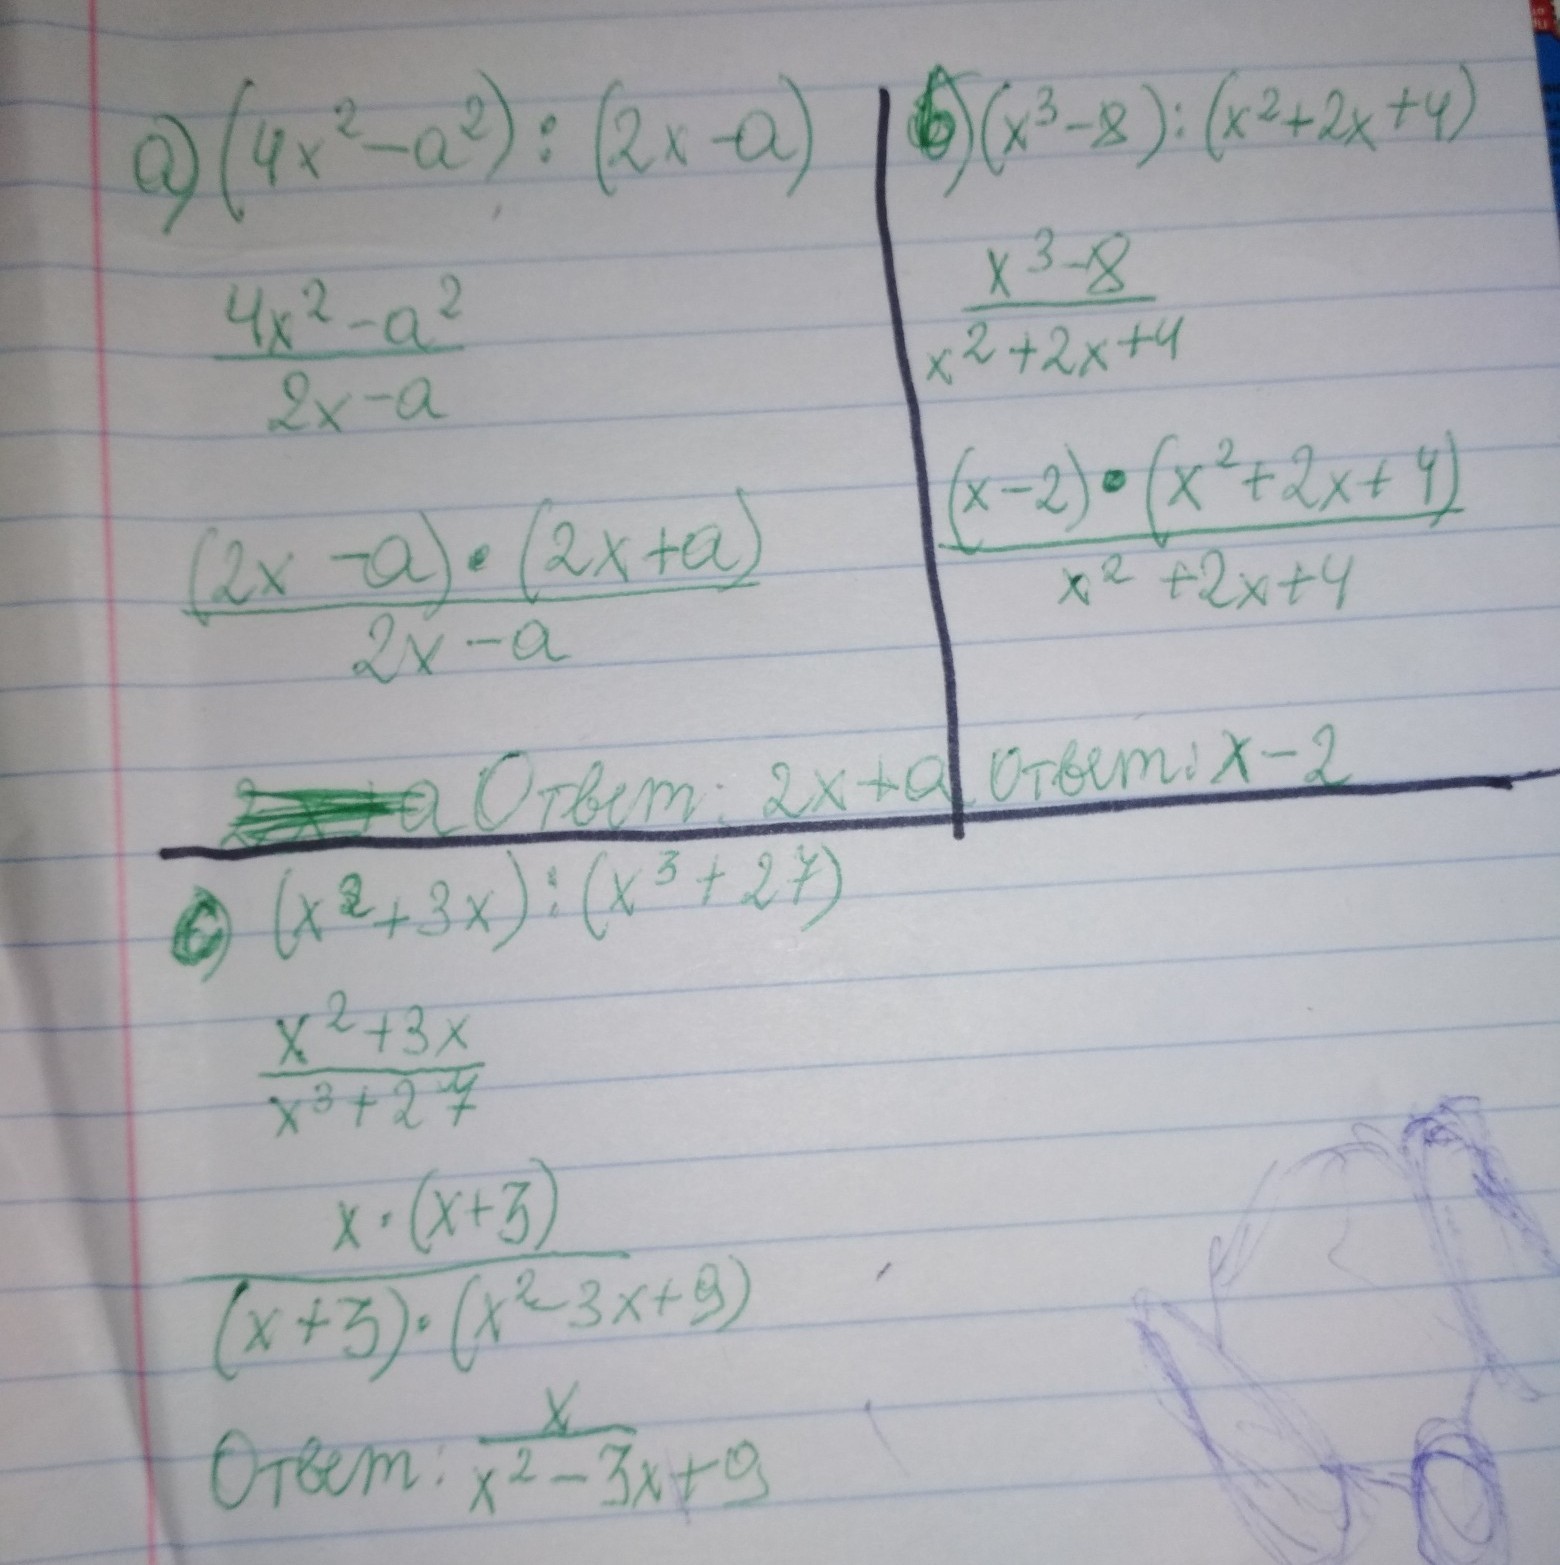 a) (4x² - a²) : (2x - a)
4x² - a²
2x - a
(2x - a) · (2x + a)
2x - a
Ответ: 2x + a
b) (x³ - 8) : (x² + 2x + 4)
x³ - 8
x² + 2x + 4
(x - 2) · (x² + 2x + 4)
x² + 2x + 4
Ответ: x - 2
c) (x² + 3x) : (x³ + 27)
x² + 3x
x³ + 27
x · (x + 3)
(x + 3) · (x² - 3x + 9)
Ответ: x
x² - 3x + 9